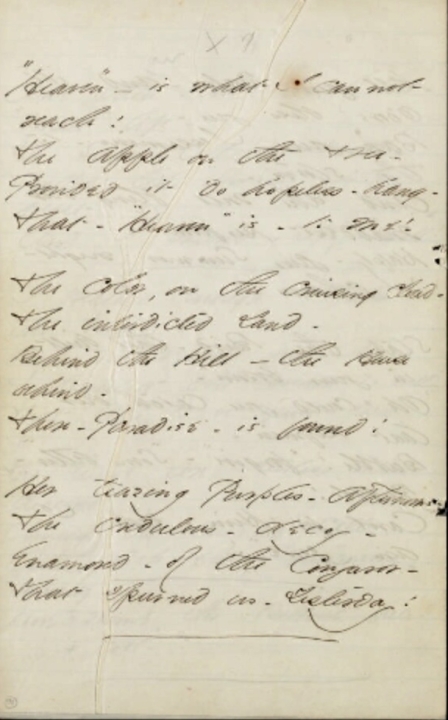 "Heaven" - is what I cannot
reach!
The apple on the tree -
Provided it do hopeless - hang -
That - "Heaven" is - to me!
The Color, on the Cruising Cloud -
The interdicted Land -
Behind the Hill - the House
behind -
There - Paradise - is found!
Her teazing Purples - Afternoons -
The credulous - decoy -
Enamored - of the Conjuror -
That spurned us - Yesterday!